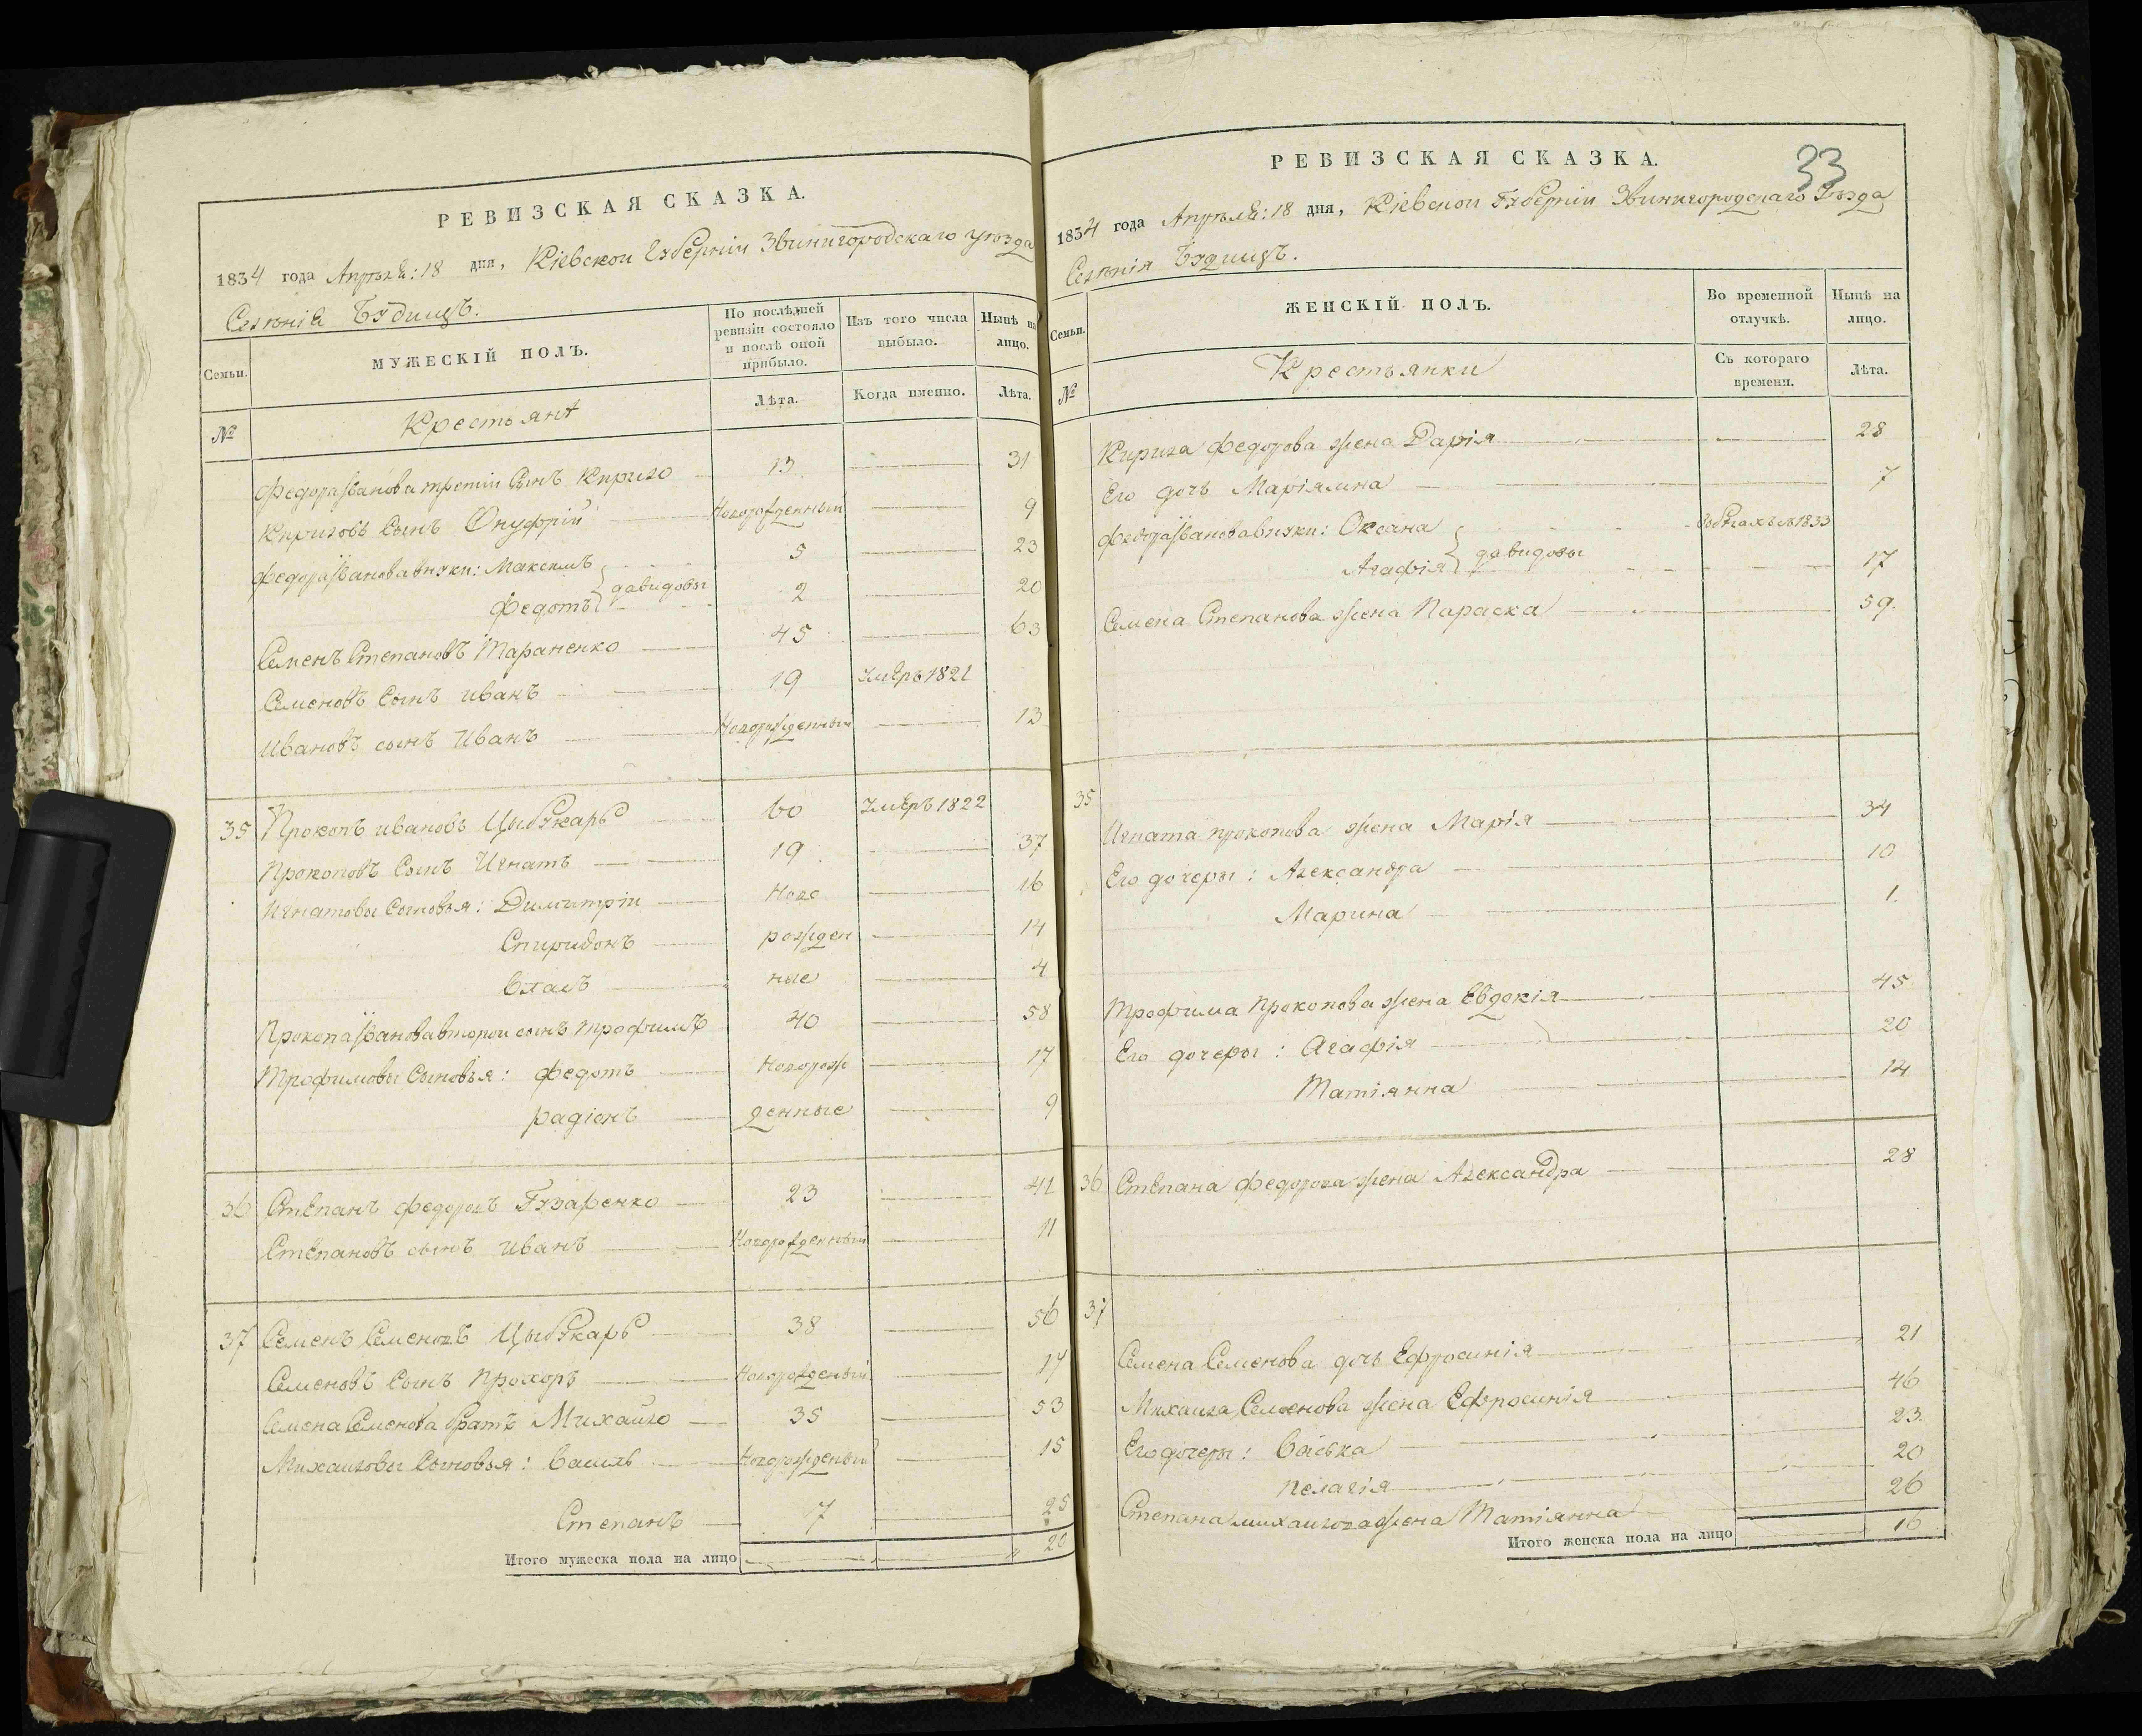 РЕВИЗСКАЯ СКАЗКА.
1834 года Апрѣля: 18 дня, Кіевской Губерніи Звинигородскаго уѣзда
Селѣнія Будищъ.
Семьи.
МУЖЕСКІЙ ПОЛЪ.
По послѣдней ревизіи состояло и послѣ оной прибыло.
Изъ того числа выбыло.
Нынѣ на лицо.
№
Крестьянъ
Лѣта.
Когда именно.
Лѣта.
Федора Иванова третій Сынъ Кирило 13 31
Кириловъ Сынъ Онуфрій Новорожденный 9
Федора Иванова внуки: Максимъ 5 23
Федотъ } давидовы 2 20
Семенъ Степановъ Тараненко 45 63
Семеновъ Сынъ иванъ 19 Умеръ 1821
Ивановъ сынъ Иванъ Новорожденный 13
35 Прокопъ ивановъ Цыбукарь 60 Умеръ 1822
Прокоповъ Сынъ Игнатъ 19 37
Игнатовы Сыновья: Димитрій Ново 16
Спиридонъ рожден 14
Власъ ные 4
Прокопа Иванова второй сынъ трофимъ 40 58
Трофимовы Сыновья: федотъНоворож 17
радіонъ денные 9
36 Степанъ федоровъ Гузаренко 23 41
Степановъ сынъ иванъ Новорожденный 11
37 Семенъ Семеновъ Цыбукарь 38 56
Семеновъ Сынъ Прохоръ Новорожденый 17
Семена Семенова братъ Михайло 35 53
Михаиловы Сыновья: Василь Новорожденый 15
Степанъ 7 25
Итого мужеска пола на лицо 20
33
РЕВИЗСКАЯ СКАЗКА.
1834 года Апрѣля: 18 дня, Кіевской Губерніи Звинигородскаго Уѣзда
Селѣнія Будищъ.
Семьи.
ЖЕНСКІЙ ПОЛЪ.
Во временной отлучкѣ.
Нынѣ на лицо.
№
Крестьянки
Съ котораго времени.
Лѣта.
Кирила федорова жена Дарія 28
Его дочь Маріямна 7
Федора Иванова внуки: Оксана въ бѣгахъ съ 1833
Агафія } давидовы 17
Семена Степанова жена Параска 59.
35
Игната прокопова жена Марія 34
Его дочеры: Александра 10
Марина 1.
Трофима Прокопова жена Евдокія 45
Его дочеры: Агафія 20
Татіянна 14
36 Степана федорова жена Александра 28
37
Семена Семенова дочь Ефросинія 21
Михаила Семенова жена Ефросинія 46
Его дочеры: Васька 23.
пелагія 20
Степана михаилова жена Татіянна 26
Итого женска пола на лицо 16